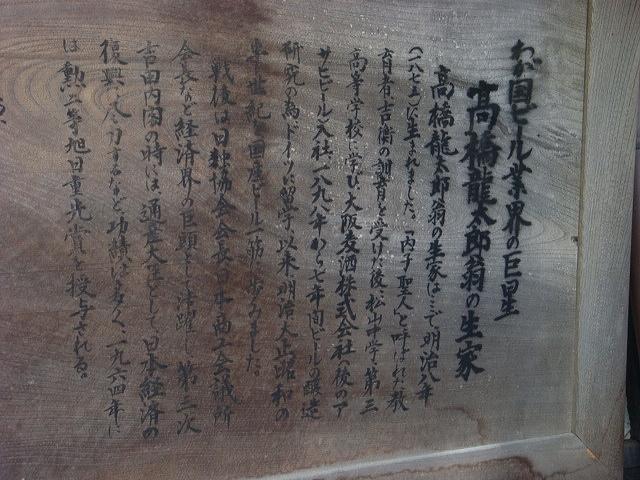 わが国ビール業界の巨星
高橋龍太郎翁の生家
高橋龍太郎翁の生家はここで明治八年
(一八七五)に生まれました。「内子聖人」と呼ばれた教
育者古衡の訓育を受けた後、松山中学、第三
高等学校に学び、大阪麦酒株式会社(後のア
サヒビール)入社、一八九八年から七年間ビールの醸造
研究の為ドイツに留学、以来明治大正昭和の
半世紀を国産ビール一筋に歩みました。
戦後は日独協会会長、日本商工会議所
会長など経済界の巨頭として活躍し、第三次
吉田内閣の時には通産大臣として日本経済の
復興に尽力するなど、功績は多く、一九六四年に
は勲一等旭日重光賞を授与される。